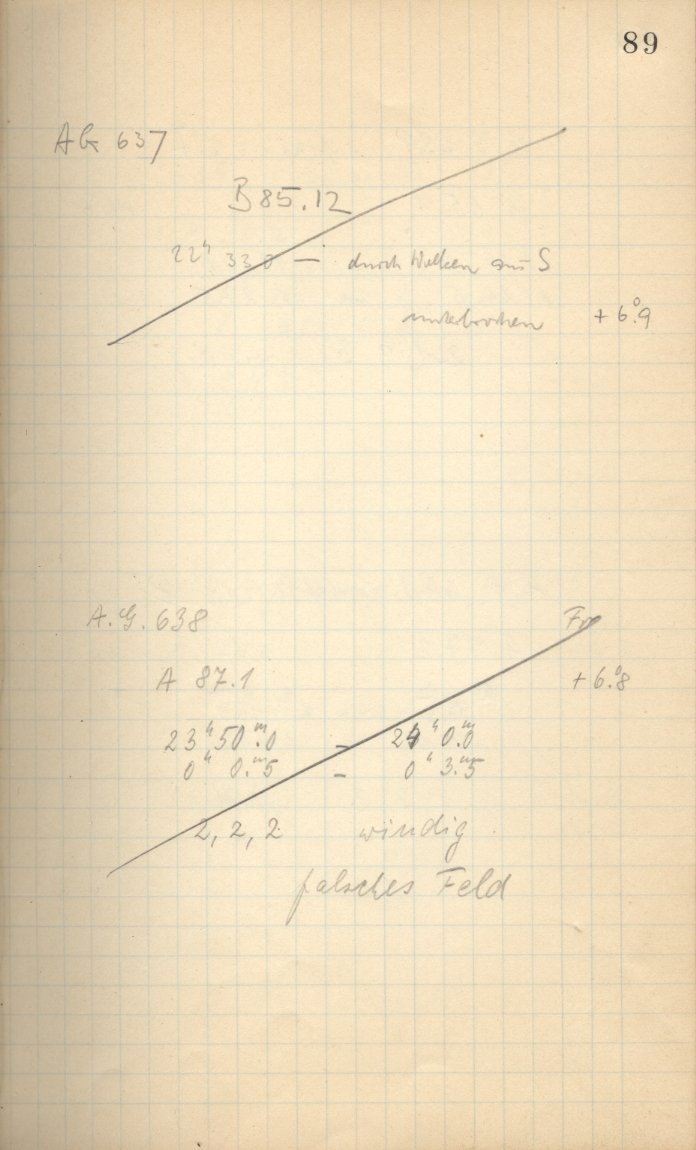 89
AG 637
B 85.12
22ʰ 33 0 — durch Wolken aus S
unterbrochen + 6°.9
A.G. 638 Fr
A 87.1 + 6°.8
23ʰ 50ᵐ.0 - 24ʰ 0ᵐ.0
0ʰ 0ᵐ.5 - 0ʰ 3ᵐ.5
2, 2, 2 windig
falsches Feld